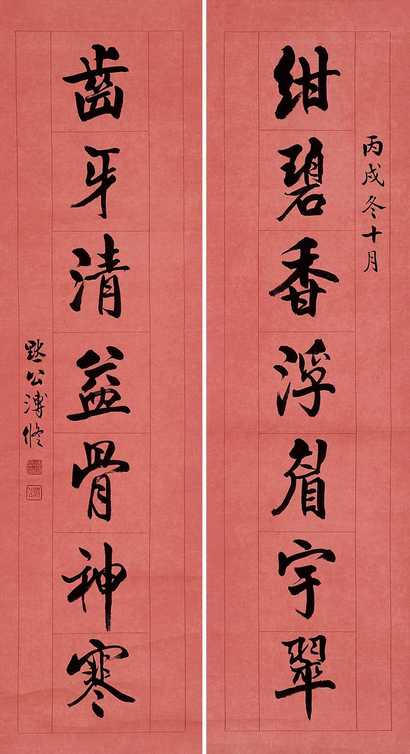 丙戌冬十月
紺碧香浮眉宇翠
齒牙清益骨神寒
默公溥修